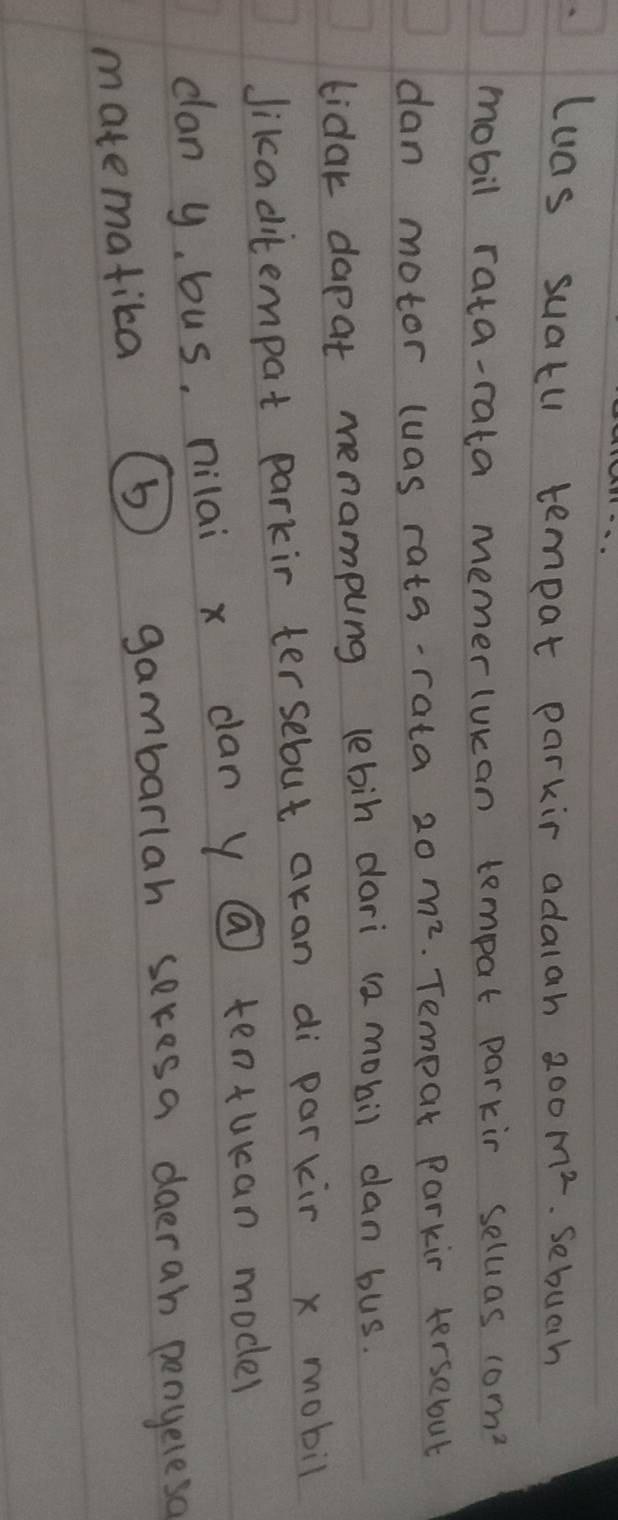 Luas suatu tempat parkir adalah 200 m². Sebuah
mobil rata-rata memerlukan tempat parkir seluas 10m²
dan motor luas rata-rata 20 m². Tempat Parkir tersebut
tidak dapat menampung lebih dari 12 mobil dan bus.
Jika ditempat parkir tersebut akan di parkir x mobil
dan y. bus, nilai x dan y (a) tentukan model
matematika (b) gambarlah sekesa daerah penyelesa